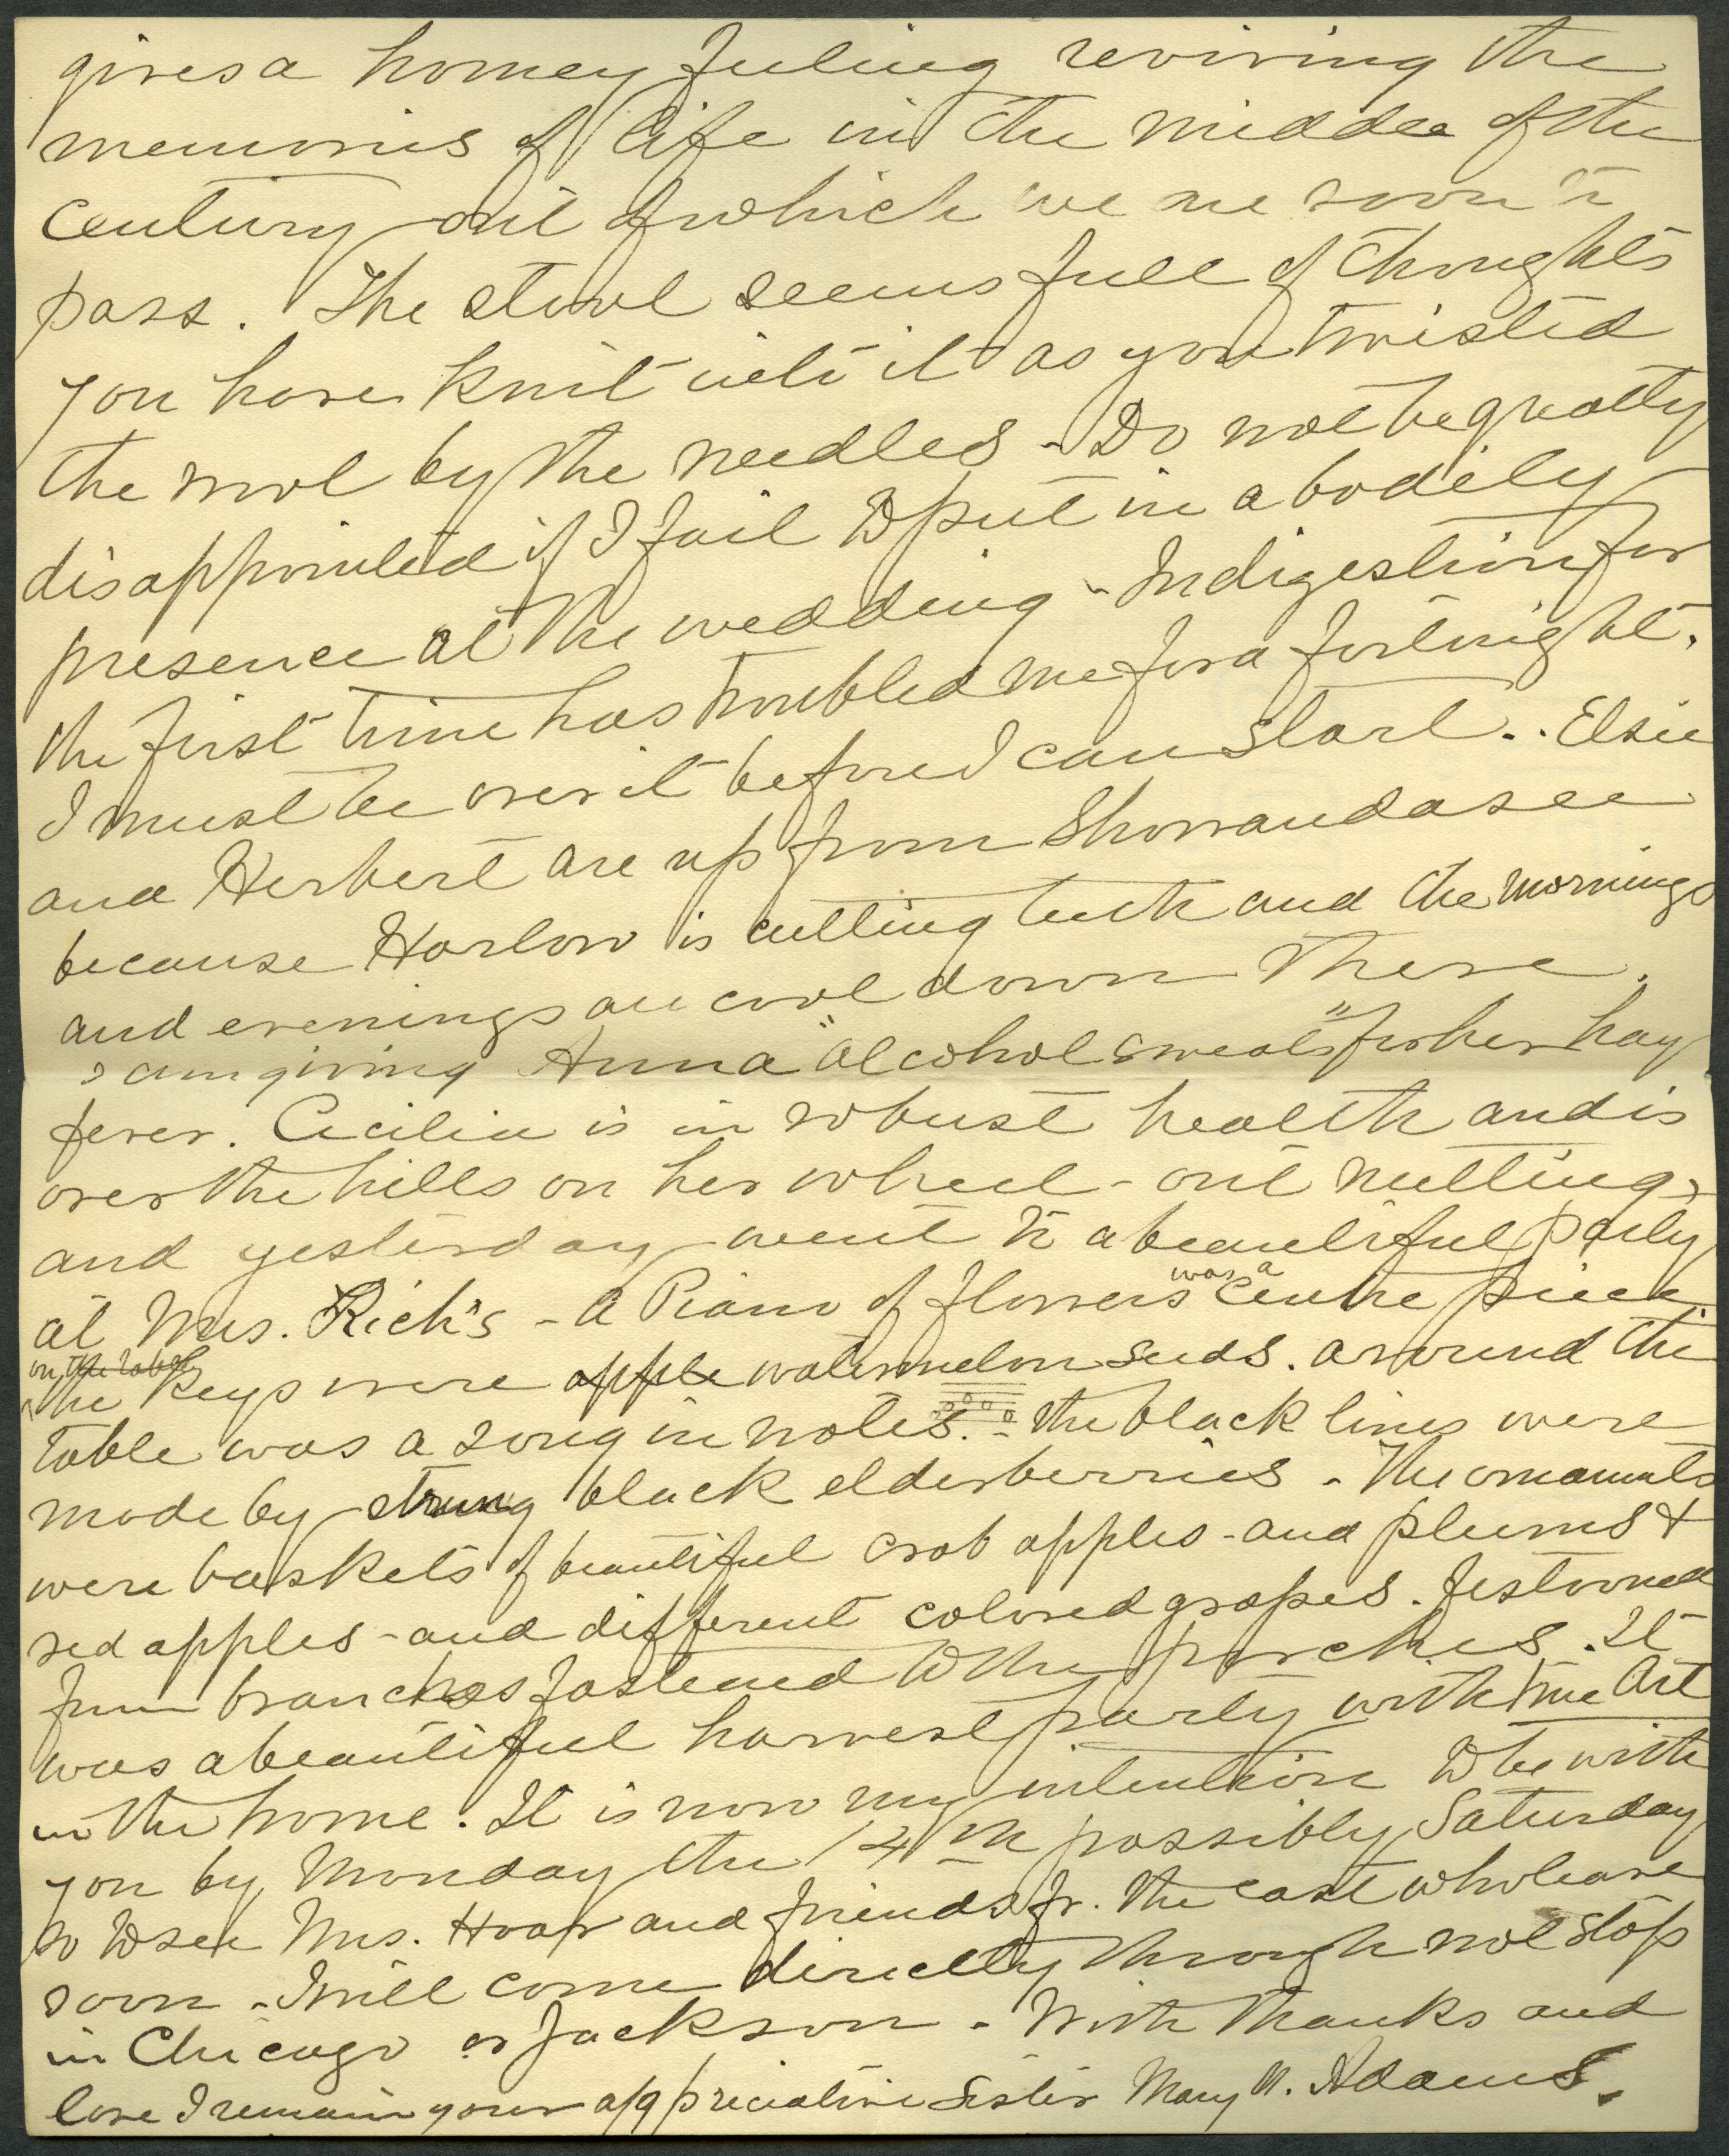 gives a homey feeling reviving the
memories of life in the middle of the
Century out of which we are soon to
pass. The stool seems full of thoughts
you have knit into it as you twisted
the wool by the needles - Do not be greatly
disappointed if I fail to put in a bodily
presence at the wedding - Indigestion for
the first time has troubled me for a fortnight.
I must be over it before I can start.. Elsie
and Herbert are up from Showandasee
because Harlow is cutting teeth and the mornings
and evenings are cool down there.
I am giving Anna "alcohol sweats" for her hay
fever. Cecilia is in robust health and is
over the hills on her wheel - out nutting,
and yesterday went to a beautiful party
at Mrs. Rich's - a Piano of flowers was a Centre piece
on the table
The keys were apple watermelon seeds. around the
table was a song in notes. - the black lines were
made by strung black elderberries - The ornaments
were baskets of beautiful crab apples - and plums &
red apples - and different colored grapes. festooned
from branches fastened to the porches. It
was a beautiful harvest party with true Art
in the home. It is now my intention to be with
you by Monday the 14th possibly Saturday
so to see Mrs. Hoar and friends fr. the east who leave
soon - I will come directly through not stop
in Chicago or Jackson - With thanks and
love I remain your appreciative sister Mary N. Adams.